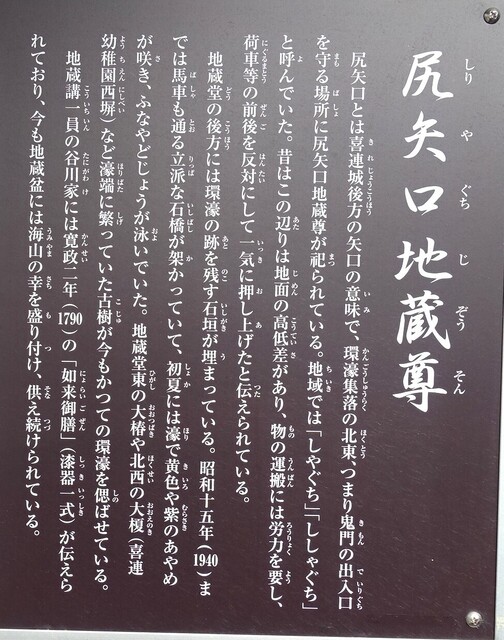 尻矢口地蔵尊
しりやぐちじぞうそん
尻矢口とは喜連城後方の矢口の意味で、環濠集落の北東、つまり鬼門の出入口
を守る場所に尻矢口地蔵尊が祀られている。地域では「しやぐち」「ししゃぐち」
と呼んでいた。昔はこの辺りは地面の高低差があり、物の運搬には労力を要し、
荷車等の前後を反対にして一気に押し上げたと伝えられている。
地蔵堂の後方には環濠の跡を残す石垣が埋まっている。昭和十五年(1940)ま
では馬車も通る立派な石橋が架かっていて、初夏には濠で黄色や紫のあやめ
が咲き、ふなやどじょうが泳いでいた。地蔵堂東の大椿や北西の大榎(喜連
幼稚園西塀)など濠端に繁っていた古樹が今もかつての環濠を偲ばせている。
地蔵講一員の谷川家には寛政二年(1790)の「如来御膳」(漆器一式)が伝えら
れており、今も地蔵盆には海山の幸を盛り付け、供え続けられている。